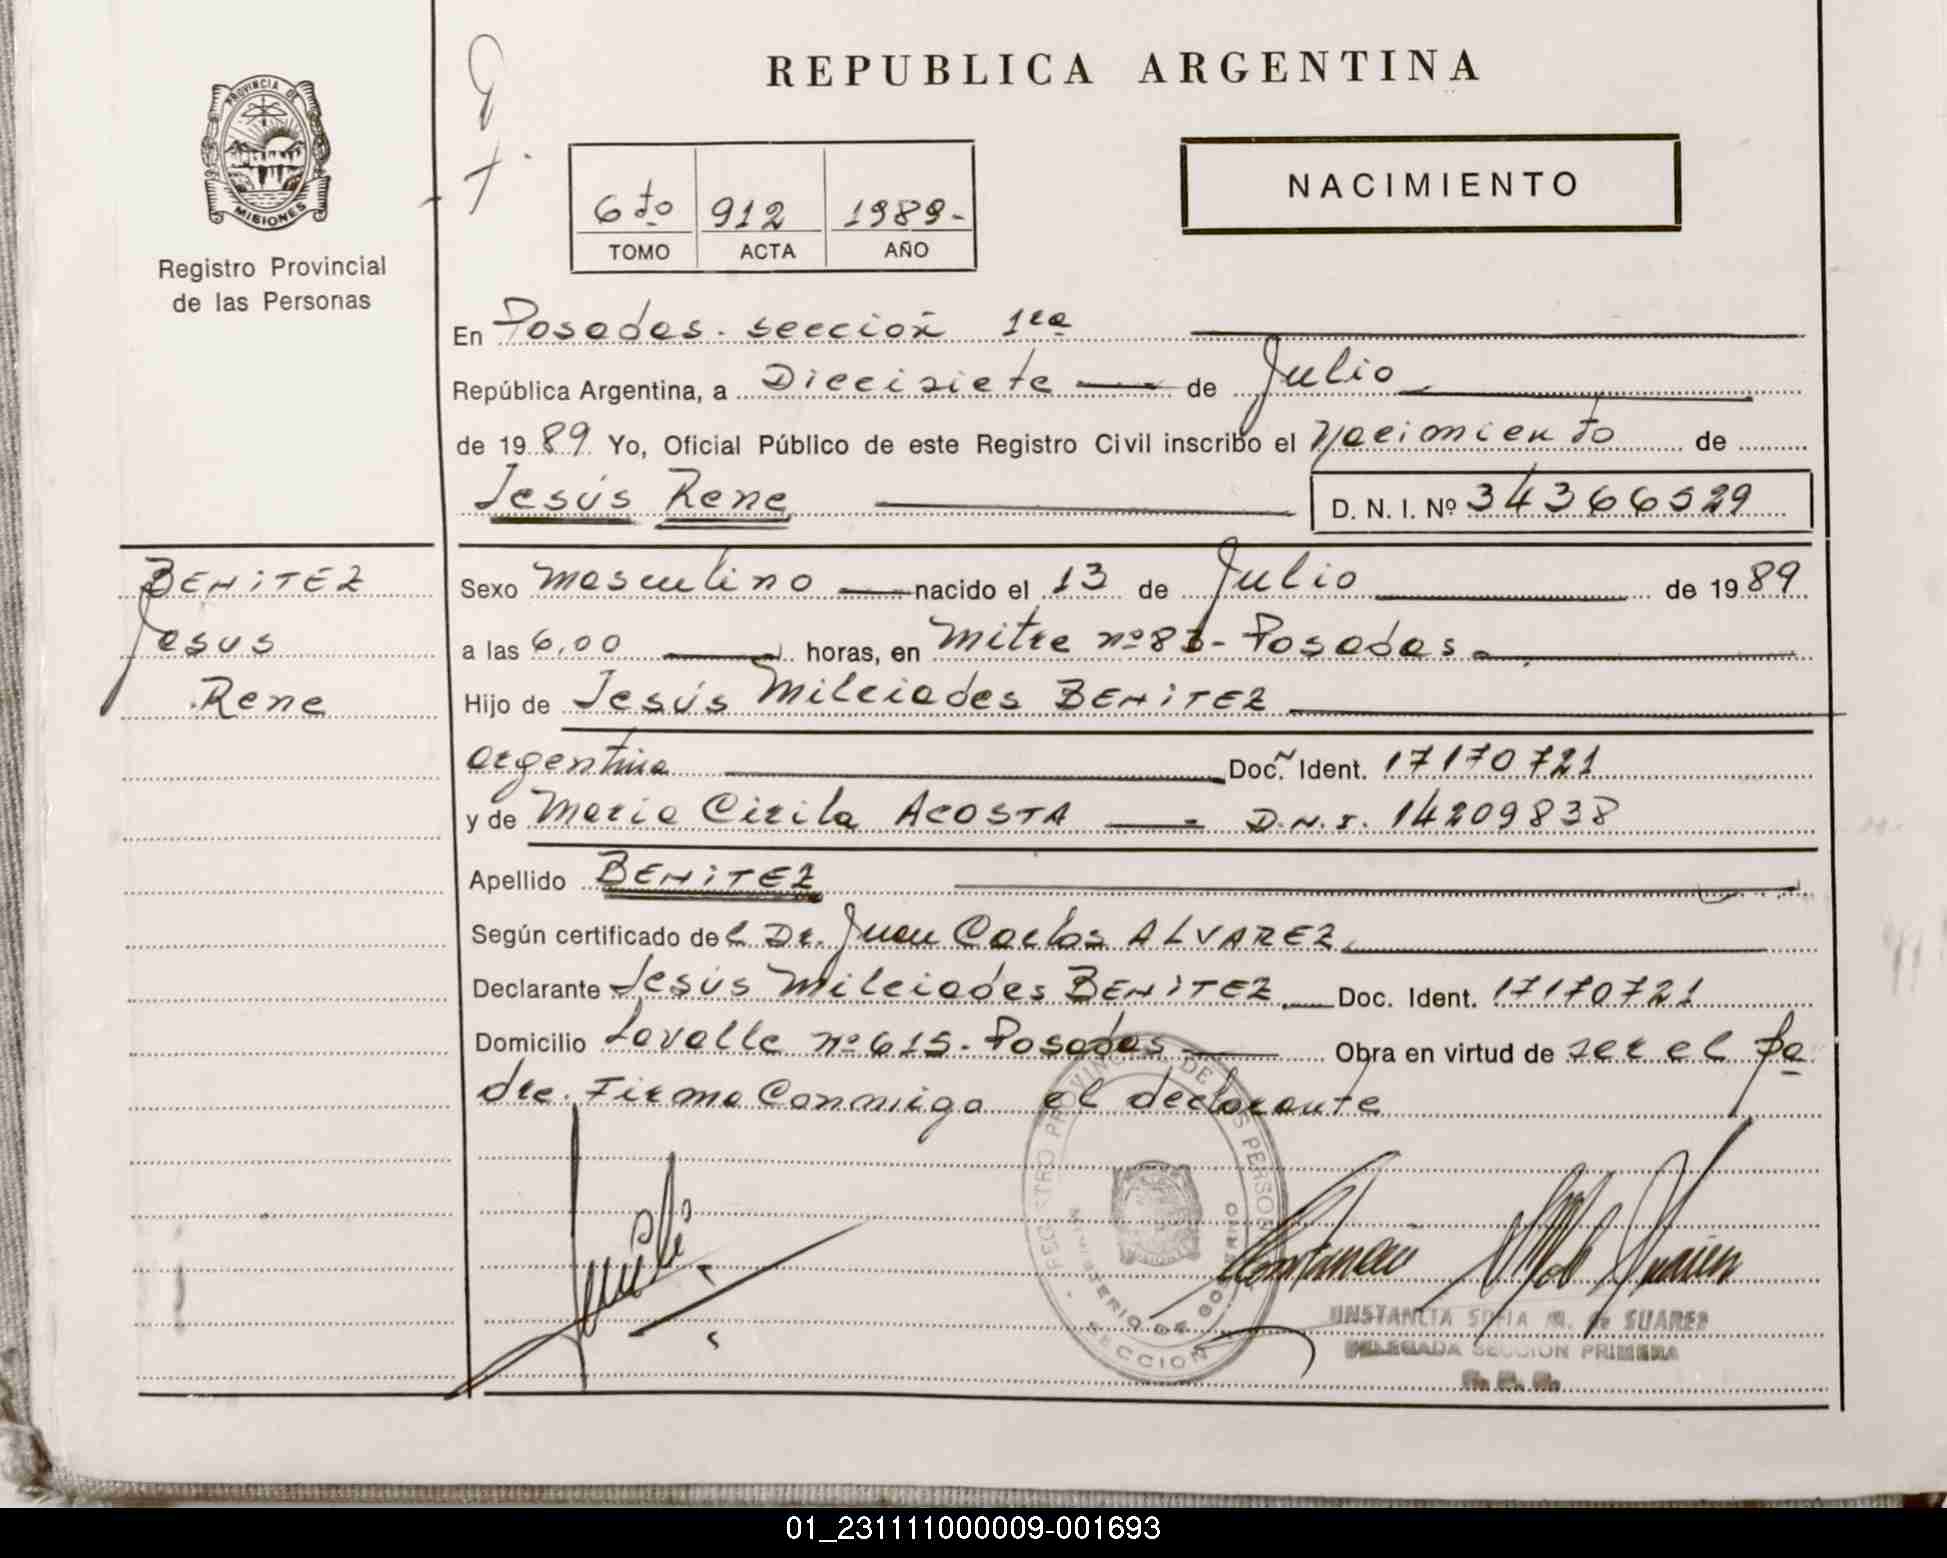 PROVINCIA DE
MISIONES
Registro Provincial
de las Personas
REPUBLICA ARGENTINA
6to 912 1989-
TOMO ACTA AÑO
NACIMIENTO
En Posadas. sección 1ra
República Argentina, a Diecisiete de Julio
de 1989 Yo, Oficial Público de este Registro Civil inscribo el nacimiento de
Jesús Rene D. N. I. Nº 34366529
BENITEZ
Jesus
Rene
Sexo masculino nacido el 13 de Julio de 1989
a las 6,00 horas, en mitre nº 83- Posadas
Hijo de Jesús Milciades BENITEZ
argentina Doc. Ident. 17170721
y de Maria Cirila ACOSTA D.N.I. 14209838
Apellido BENITEZ
Según certificado del Dr. Juan Carlos ALVAREZ
Declarante Jesús Milciades BENITEZ Doc. Ident. 17170721
Domicilio Lavalle nº 615. Posadas Obra en virtud de ser el pa
dre. Firma Conmigo el declarante
REGISTRO PROVINCIAL DE LAS PERSONAS
MINISTERIO DE GOBIERNO
SECCION
CONSTANCIA SOFIA M. de SUAREZ
DELEGADA SECCION PRIMERA
01_231111000009-001693